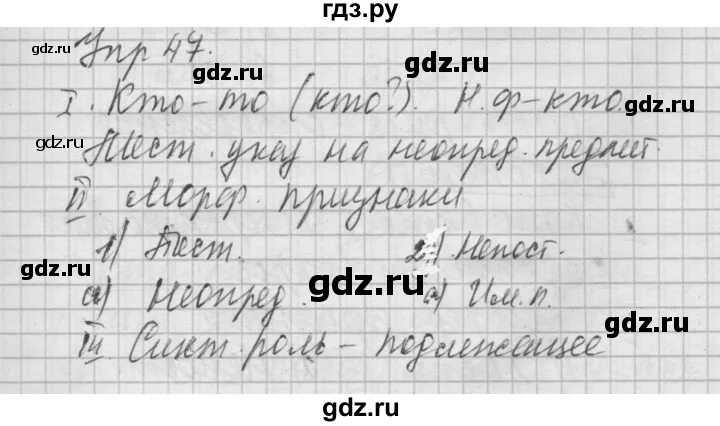 гдз.ру
Упр 47.
I. Кто-то (кто?). Н.ф-кто.
Мест. указ на неопред. предмет.
II. Морф. признаки
1) Мест. 2) Непост.
а) Неопред. а) Им.п.
III. Синт. роль - подлежащее
gdz.ru
gdz.ru
gdz.ru
gdz.ru
gdz.ru
gdz.ru
gdz.ru
gdz.ru
gdz.ru
gdz.ru
gdz.ru